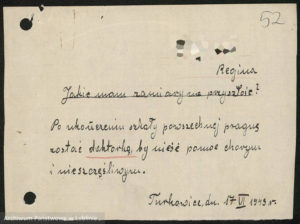 52
Regina
Jakie mam zamiary na przyszłość?
Po ukończeniu szkoły powszechnej pragnę
zostać doktorką, by nieść pomoc chorym
i nieszczęśliwym.
Turkowice, dn. 17 VI 1943 r.
Archiwum Państwowe w Lublinie